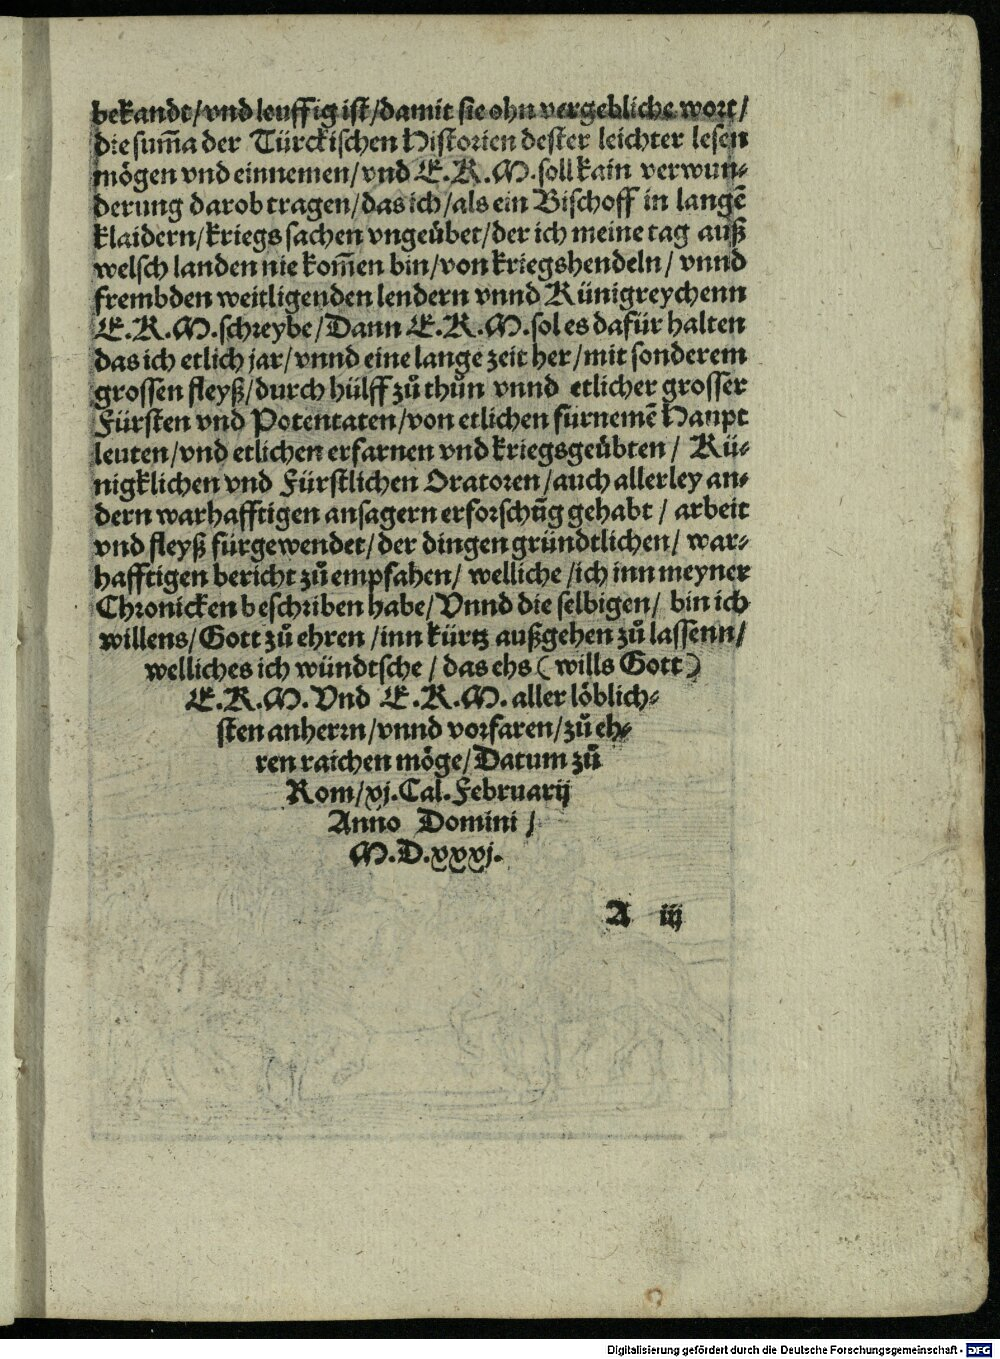 bekandt/vnd leuffig ist/damit sie ohn vergebliche wort/
die sum̃a der Türckischen Historien dester leichter lesen
mögen vnd einnemen/vnd E.K.M.soll kain verwun⸗
derung darob tragen/das ich/als ein Bischoff in langẽ
klaidern/kriegs sachen vngeübet/der ich meine tag auß
welsch landen nie kom̃en bin/von kriegshendeln/ vnnd
frembden weitligenden lendern vnnd Künigreychenn
E.K.M.schreybe/Dann E.K.M.sol es dafür halten
das ich etlich jar/vnnd eine lange zeit her/mit sonderem
grossen fleyß/durch hülff zů thůn vnnd etlicher grosser
Fürsten vnd Potentaten/von etlichen fürnemẽ Haupt
leuten/vnd etlichen erfarnen vnd kriegsgeübten/ Kü⸗
nigklichen vnd Fürstlichen Oratoren/auch allerley an⸗
dern warhafftigen ansagern erforschũg gehabt/ arbeit
vnd fleyß fürgewendet/der dingen gründtlichen/ war⸗
hafftigen bericht zů empfahen/ welliche/ich inn meyner
Chronicken beschriben habe/Vnnd die selbigen/ bin ich
willens/Gott zů ehren/inn kürtz außgehen zů lassenn/
welliches ich wündtsche/das ehs (wills Gott)
E.K.M.Vnd E.K.M.aller löblich⸗
sten anherrn/vnnd vorfaren/zů eh⸗
ren raichen möge/Datum zů
Rom/xj.Cal.Februarij
Anno Domini/
M.D.xxxj.
A iij
Digitalisierung gefördert durch die Deutsche Forschungsgemeinschaft - DFG